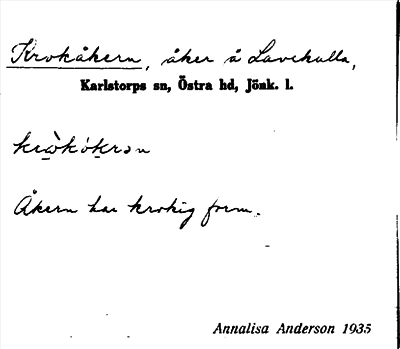 Krokåkern, åker å Lavekulla,
Karlstorps sn, Östra hd, Jönk. l.
krò̠kók̠rən
Åkern har krokig form.
Annalisa Anderson 1935